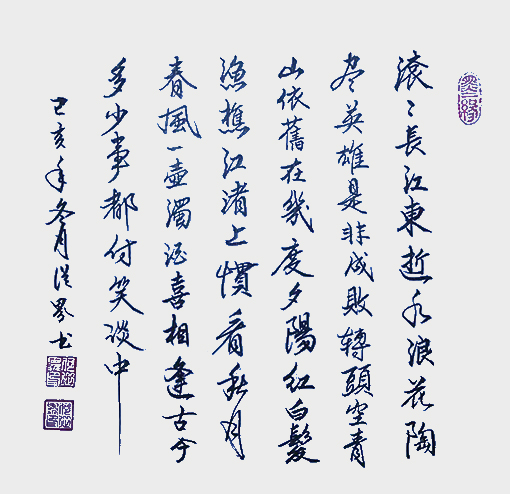 滾〻長江東逝水浪花陶
盡英雄是非成敗轉頭空青
山依舊在幾度夕陽紅白髮
漁樵江渚上慣看秋月
春風一壺濁酒喜相逢古今
多少事都付笑談中
己亥年冬月
书